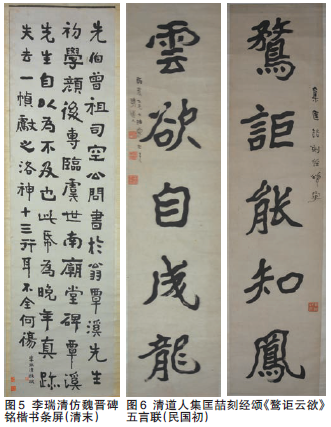 先伯曾祖司空公問書於翁覃溪先生
初學顏後專臨虞世南廟堂碑覃溪
先生自以為不及也此為晚年真跡
失去一幀獻之洛神十三行耳不全何傷
鶩詎能知鳳
雲欲自成龍
图5 李瑞清仿魏晋碑
铭楷书条屏(清末)
图6 清道人集匡喆刻经颂《鹜讵云欲》
五言联(民国初)